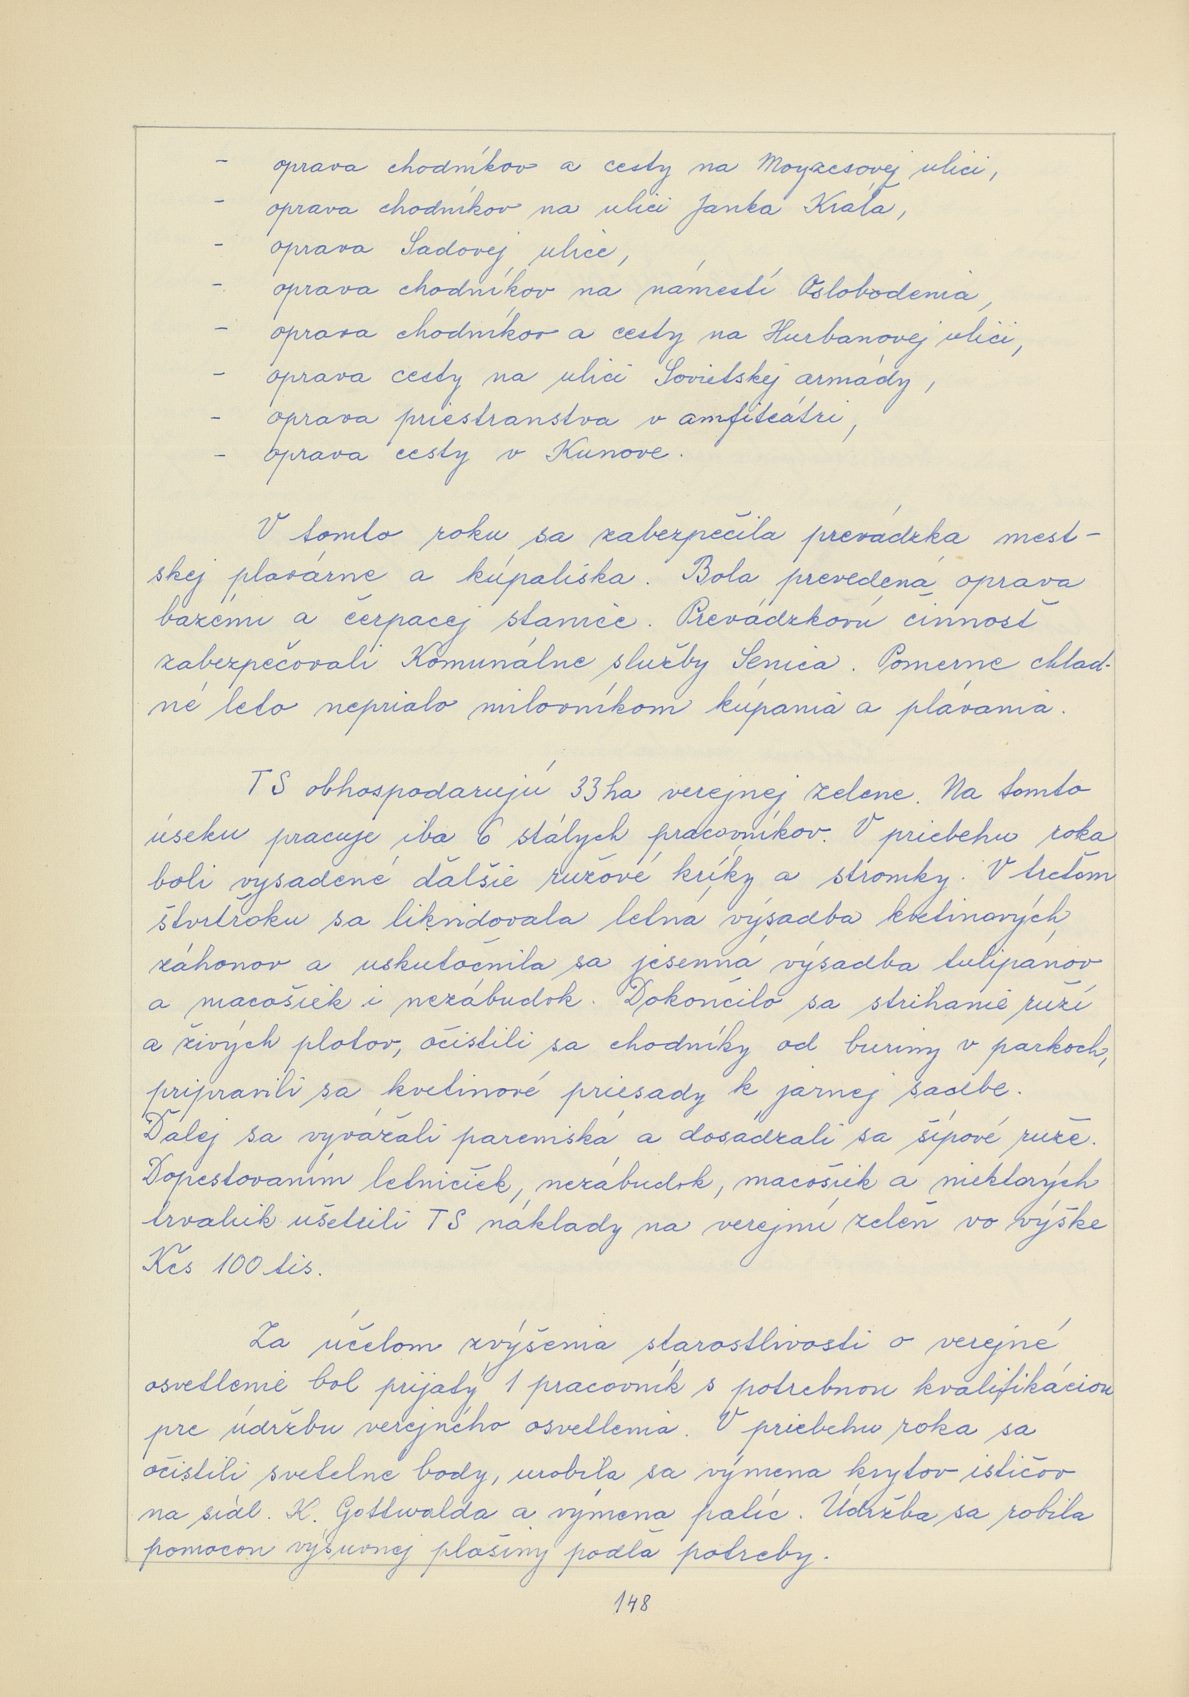 - oprava chodníkov a cesty na Moyzesovej ulici,
- oprava chodníkov na ulici Janka Kráľa,
- oprava Sadovej ulice,
- oprava chodníkov na námestí Oslobodenia,
- oprava chodníkov a cesty na Hurbanovej ulici,
- oprava cesty na ulici Sovietskej armády,
- oprava priestranstva v amfiteátri,
- oprava cesty v Kunove.
V tomto roku sa zabezpečila prevádzka mest-
skej plavárne a kúpaliska. Bola prevedená oprava
bazénu a čerpacej stanice. Prevádzkovú činnosť
zabezpečovali Komunálne služby Senica. Pomerne chlad-
né leto neprialo milovníkom kúpania a plávania.
TS obhospodarujú 33 ha verejnej zelene. Na tomto
úseku pracuje iba 6 stálych pracovníkov. V priebehu roka
boli vysadené ďalšie ružové kríky a stromky. V treťom
štvrťroku sa likvidovala letná výsadba kvetinových
záhonov a uskutočnila sa jesenná výsadba tulipánov
a macošiek i nezábudok. Dokončilo sa strihanie ruží
a živých plotov, očistili sa chodníky od buriny v parkoch,
pripravili sa kvetinové priesady k jarnej sadbe.
Ďalej sa vyvážali pareniská a dosádzali sa šípové ruže.
Dopestovaním letničiek, nezábudok, macošiek a niektorých
trvaliek ušetrili TS náklady na verejnú zeleň vo výške
Kčs 100 tis.
Za účelom zvýšenia starostlivosti o verejné
osvetlenie bol prijatý 1 pracovník s potrebnou kvalifikáciou
pre údržbu verejného osvetlenia. V priebehu roka sa
očistili svetelné body, urobila sa výmena krytov ističov
na sídl. K. Gottwalda a výmena palíc. Údržba sa robila
pomocou výsuvnej plošiny podľa potreby.
148